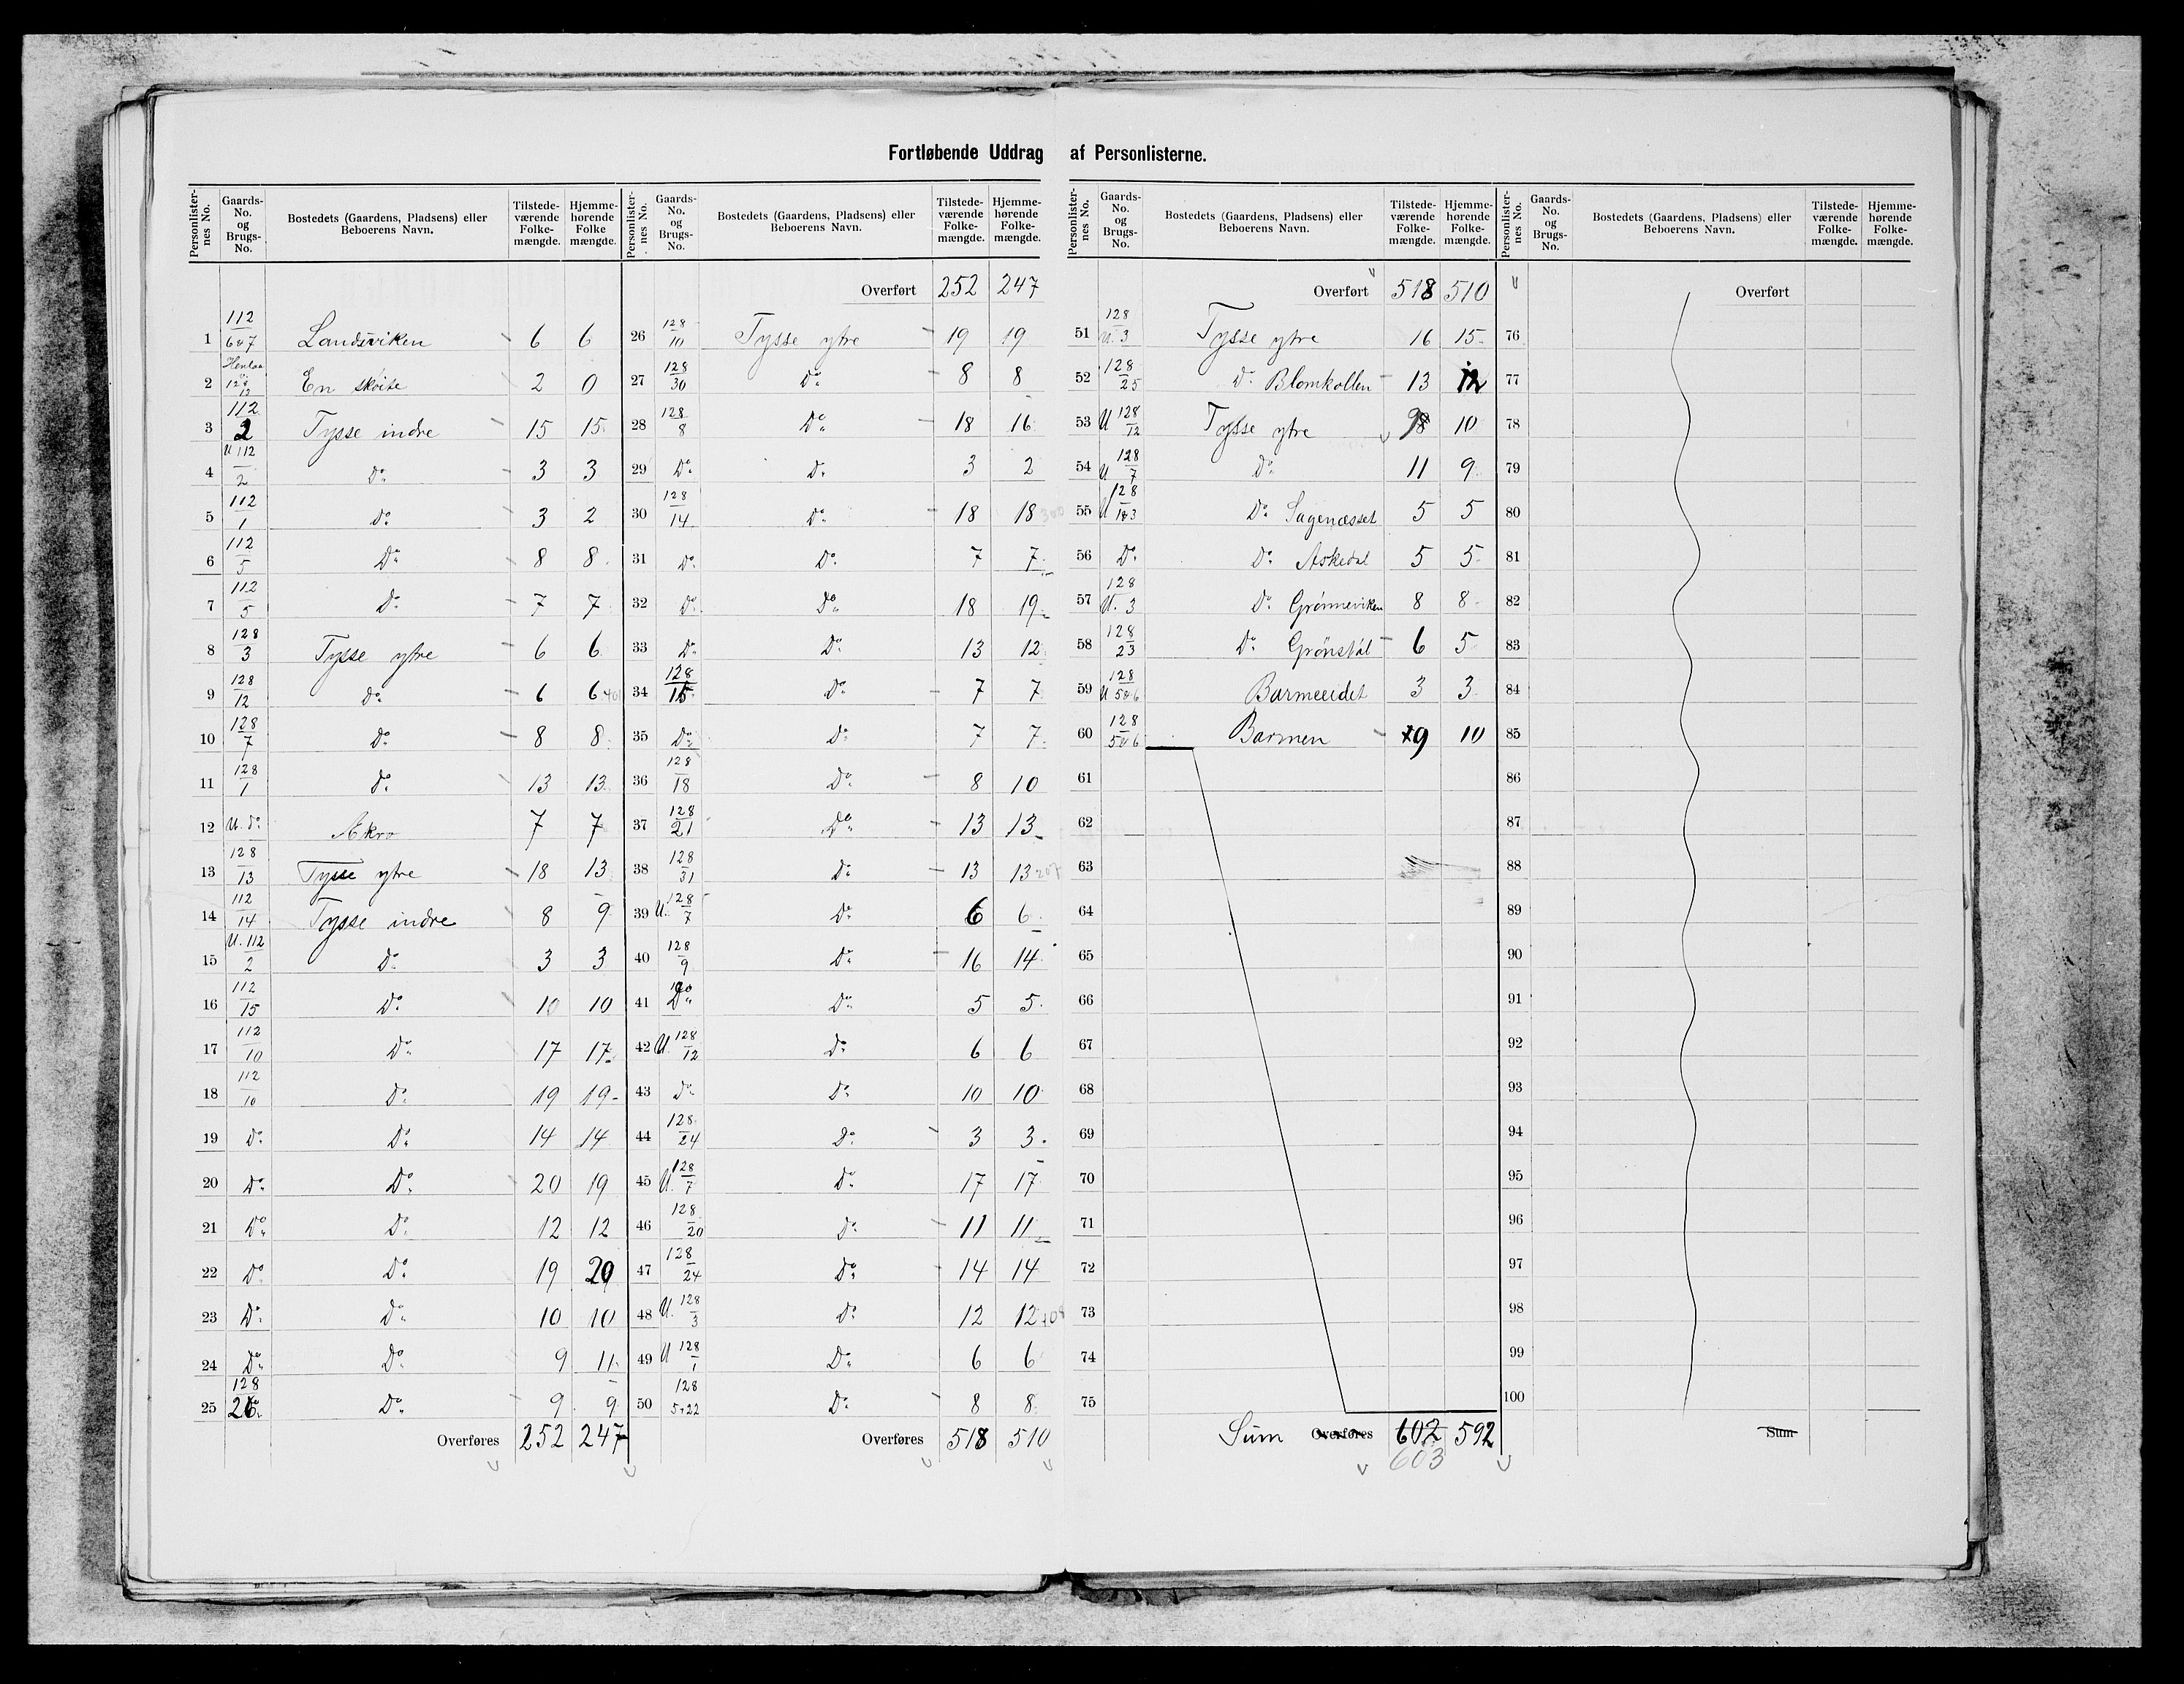 Fortløbende Uddrag af Personlisterne.
Personlister-nes No. | Gaards-No. og Brugs-No. | Bostedets (Gaardens, Pladsens) eller Beboerens Navn. | Tilstede-værende Folke-mængde. | Hjemme-hørende Folke mængde.
1 112/6&7 Landsviken 6 6
2 En skøite 2 0
3 112/2 Tysse indre 15 15
4 U 112/2 Do 3 3
5 112/1 Do 3 2
6 112/5 Do 8 8
7 112/5 Do 7 7
8 128/3 Tysse ytre 6 6
9 128/12 Do 6 6
10 128/7 Do 8 8
11 128/1 Do 13 13
12 U. do 7 7
13 128/13 Tysse ytre 18 13
14 112/14 Tysse indre 8 9
15 U. 112/2 Do 3 3
16 112/15 Do 10 10
17 112/10 Do 17 17
18 112/10 Do 19 19
19 Do Do 14 14
20 Do Do 20 19
21 Do Do 12 12
22 Do Do 19 20
23 Do Do 10 10
24 Do Do 9 11
25 128/26 Do 9 9
Overføres 252 247
Personlister-nes No. | Gaards-No. og Brugs-No. | Bostedets (Gaardens, Pladsens) eller Beboerens Navn. | Tilstede-værende Folke-mængde. | Hjemme-hørende Folke-mængde.
Overført 252 247
26 128/10 Tysse ytre 19 19
27 128/30 Do 8 8
28 128/8 Do 18 16
29 Do Do 3 2
30 128/14 Do 18 18
31 Do Do 7 7
32 Do Do 18 19
33 Do Do 13 12
34 128/15 Do 7 7
35 Do Do 7 7
36 128/18 Do 8 10
37 128/21 Do 13 13
38 128/31 Do 13 13
39 U. 128/7 Do 6 6
40 128/9 Do 16 14
41 Do Do 5 5
42 U. 128/12 Do 6 6
43 Do Do 10 10
44 128/24 Do 3 3
45 U. 128/7 Do 17 17
46 128/20 Do 11 11
47 128/24 Do 14 14
48 U. 128/3 Do 12 12
49 U 128/1 Do 6 6
50 128/5+22 Do 8 8
Overføres 518 510
Personlister-nes No. | Gaards-No. og Brugs-No. | Bostedets (Gaardens, Pladsens) eller Beboerens Navn. | Tilstede-værende Folke-mængde. | Hjemme-hørende Folke-mængde.
Overført 518 510
51 128/U. 3 Tysse ytre 16 15
52 128/25 Do Blomkollen 13 12
53 U 128/12 Tysse ytre 10
54 U 128/7 Do 11 9
55 U 128 Do Sagenæsset 5 5
56 Do Do Askedal 5 5
57 128/U. 3 Do Grønneviken 8 8
58 128/23 Do Grønstøl 6 5
59 128/U 5&6 Barmeeidet 3 3
60 128/5&6 Barmen 9 10
61
62
63
64
65
66
67
68
69
70
71
72
73
74
75
Sum Overføres 602 592
603
Personlister-nes No. | Gaards-No. og Brugs-No. | Bostedets (Gaardens, Pladsens) eller Beboerens Navn. | Tilstede-værende Folke-mængde. | Hjemme-hørende Folke-mængde.
Overført
76
77
78
79
80
81
82
83
84
85
86
87
88
89
90
91
92
93
94
95
96
97
98
99
100
Sum